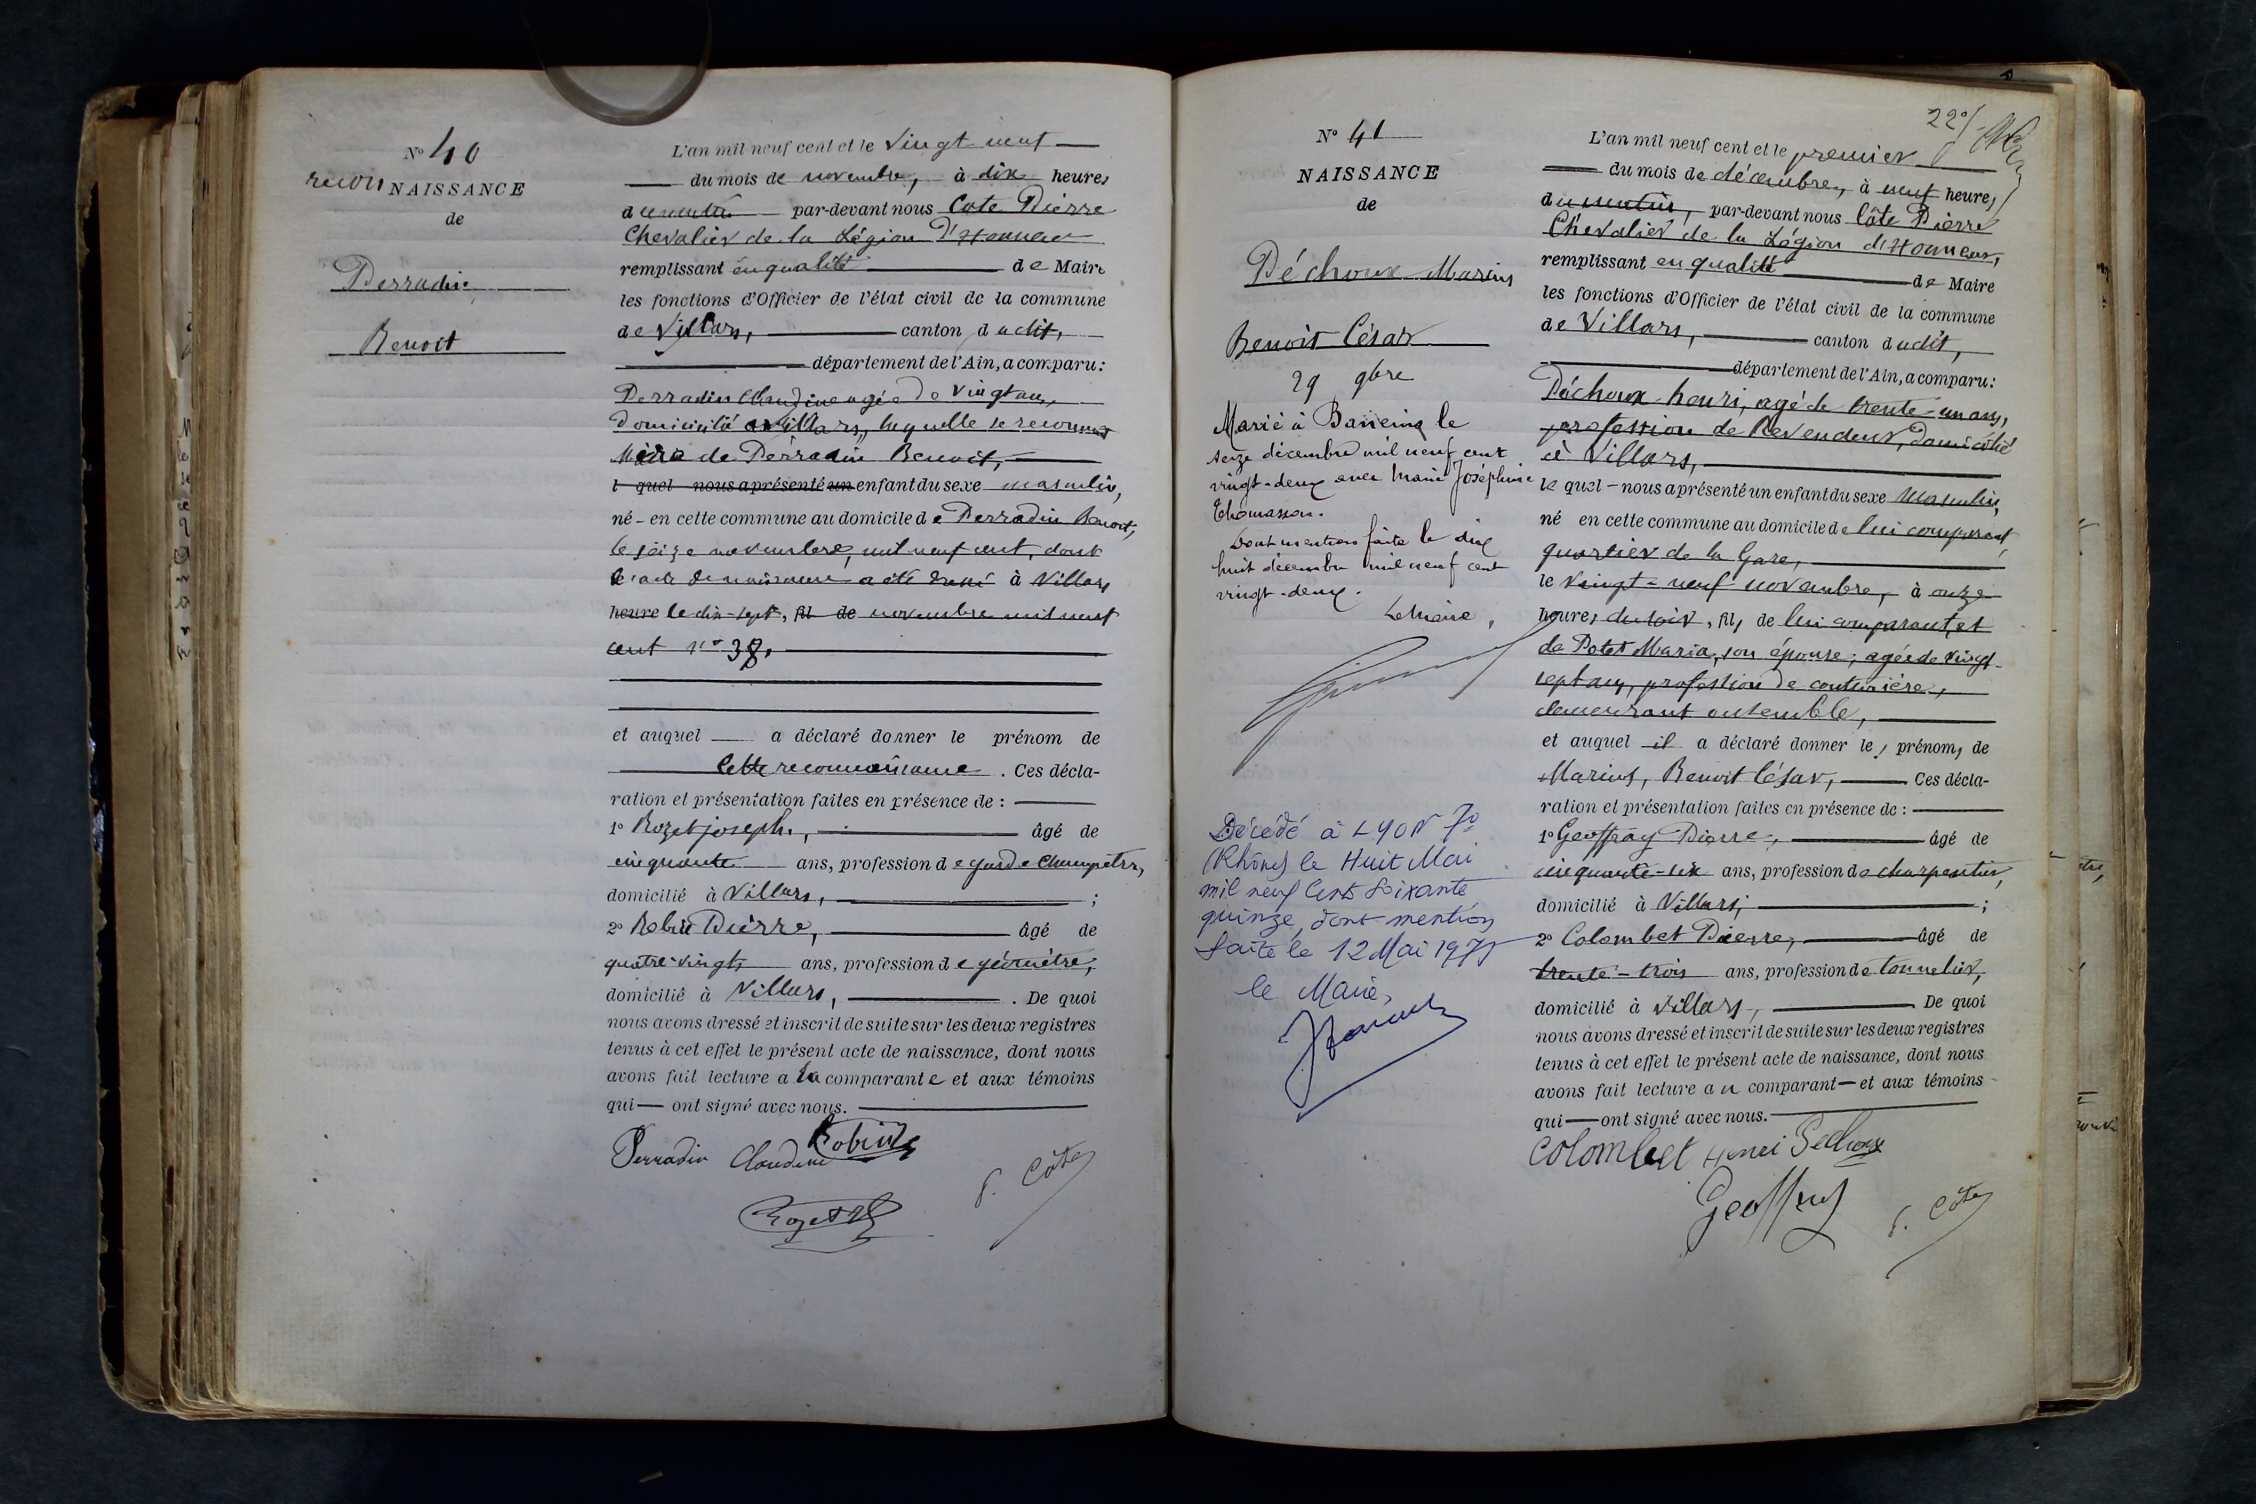 N° 40
recon NAISSANCE
de
Perradin
Benoit
L'an mil neuf cent et le vingt-neuf
du mois de novembre, à dix heures
du matin par-devant nous Cote Pierre
Chevalier de la Légion d'Honneur
remplissant en qualité de Maire
les fonctions d'Officier de l'état civil de la commune
de Villars, canton dudit,
département de l'Ain, a comparu:
Perradin Claudine agée de vingt ans,
domiciliée à Villars, laquelle se reconnait
Mère de Perradin Benoit,
l quel nous a présenté un enfant du sexe masculin,
né en cette commune au domicile de Perradin Benoit,
le seize novembre, mil neuf cent, dont
l'acte de naissance a été dressé à Villars
heure le dix-sept, fil de novembre mil neuf
cent n° 38.
et auquel a déclaré donner le prénom de
Cette reconnaissance. Ces décla-
ration et présentation faites en présence de :
1° Rozet joseph, âgé de
cinquante ans, profession de garde champêtre,
domicilié à Villars, ;
2° Robin Pierre, âgé de
quatre-vingts ans, profession de géomètre,
domicilié à Villars, . De quoi
nous avons dressé et inscrit de suite sur les deux registres
tenus à cet effet le présent acte de naissance, dont nous
avons fait lecture a la comparante et aux témoins
qui ont signé avec nous.
Perradin Claudine Robin
Rozet P. Côte
22°/
N° 41
NAISSANCE
de
Déchoux Marius
Benoit César
29 9bre
Marié à le
seize décembre mil neuf cent
vingt-deux avec Marie Joséphine
Thomasson.
Dont mention faite le dix
huit décembre mil neuf cent
vingt-deux.
Le Maire,
Décédé à LYON 7°
(Rhône) le Huit Mai
mil neuf Cent Soixante
quinze, dont mention
faite le 12 Mai 1975
le Maire,
L'an mil neuf cent et le premier
du mois de décembre, à neuf heures
du matin, par-devant nous Côte Pierre
Chevalier de la Légion d'Honneur,
remplissant en qualité de Maire
les fonctions d'Officier de l'état civil de la commune
de Villars, canton dudit,
département de l'Ain, a comparu:
Déchoux henri, agé de trente-un ans,
profession de Revendeur, domicilié
à Villars,
le quel nous a présenté un enfant du sexe masculin,
né en cette commune au domicile de lui comparant,
quartier de la Gare,
le vingt-neuf novembre, à onze
heures du soir, fils de lui comparant, et
de Potet Maria, son épouse; agée de vingt-
sept ans, profession de couturière,
demeurant ensemble,
et auquel il a déclaré donner les prénoms de
Marius, Benoit César, Ces décla-
ration et présentation faites en présence de :
1° Geoffray Pierre, âgé de
cinquante-six ans, profession de charpentier,
domicilié à Villars; ;
2° Colombet Pierre, âgé de
trente-trois ans, profession de tonnelier,
domicilié à Villars, De quoi
nous avons dressé et inscrit de suite sur les deux registres
tenus à cet effet le présent acte de naissance, dont nous
avons fait lecture au comparant et aux témoins
qui ont signé avec nous.
Colombet Henri Dechoux
Geoffray P. Côte